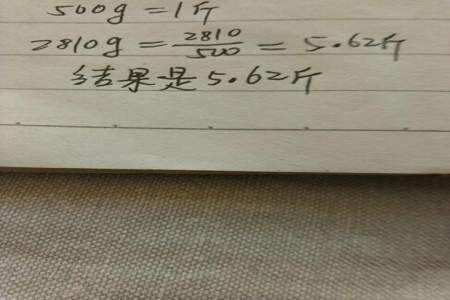 500g=1斤
2810g=2810/500=5.62斤
结果是5.62斤